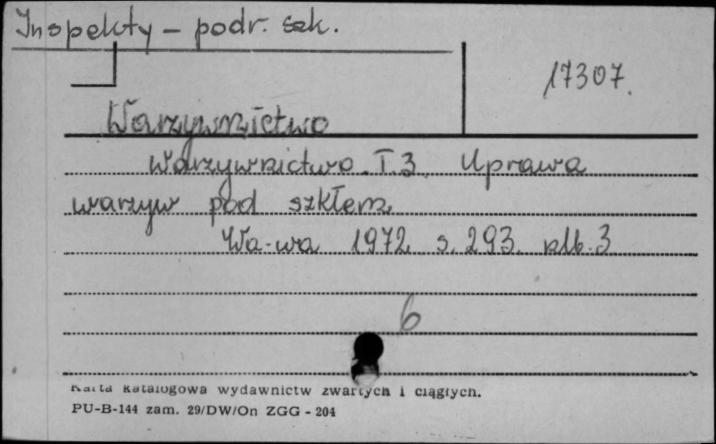 Inspekty - podr. szk.
17307.
Warzywnictwo
Warzywnictwo. T.3. Uprawa
warzyw pod szkłem
Wa-wa 1972 s. 293. nlb. 3
6
Karta katalogowa wydawnictw zwartych i ciągłych.
PU-B-144 zam. 29/DW/On ZGG - 204